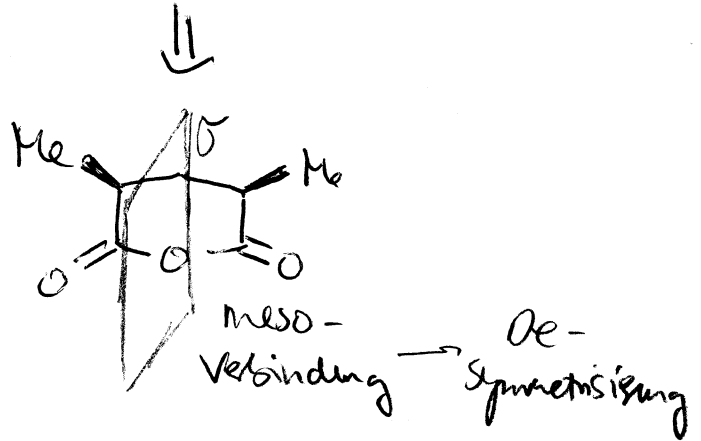 σ
Me Me
O O O
meso-
Verbindung → De-
symmetrisierung